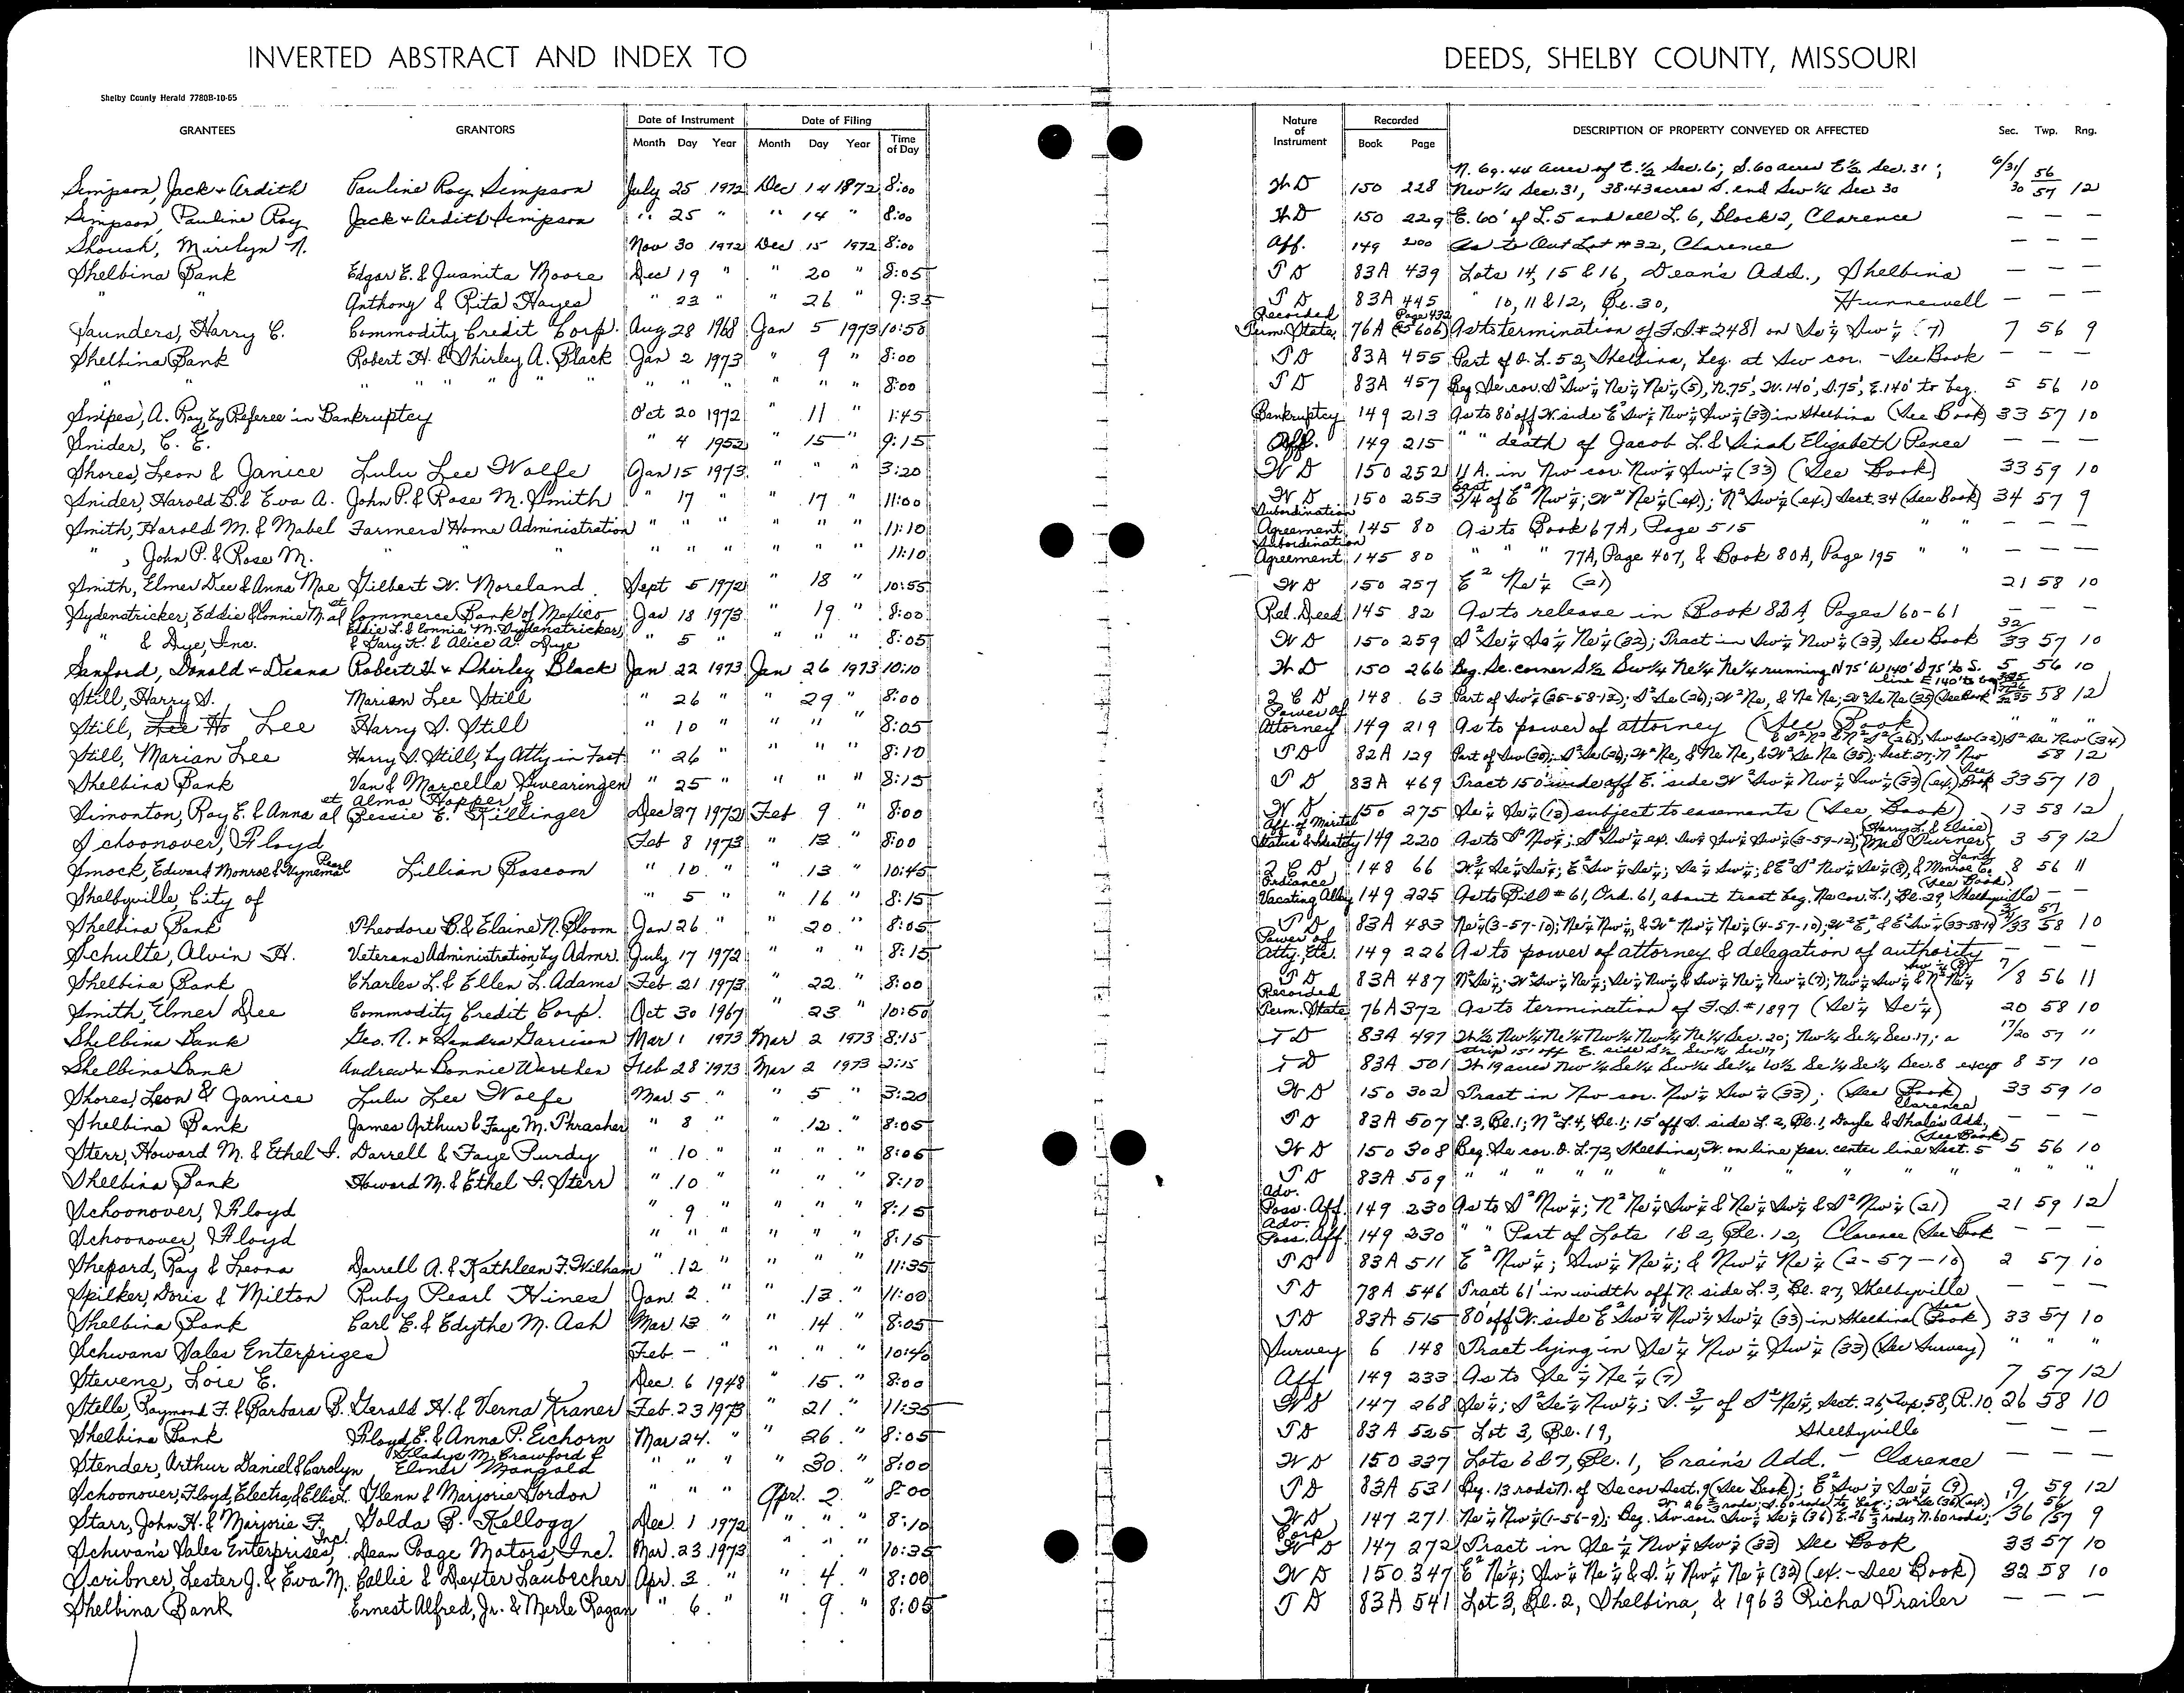 INVERTED ABSTRACT AND INDEX TO DEEDS, SHELBY COUNTY, MISSOURI
Shelby County Herald 7780B-10-65
GRANTEES GRANTORS Date of Instrument Month Day Year Date of Filing Month Day Year Time of Day Nature of Instrument Recorded Book Page DESCRIPTION OF PROPERTY CONVEYED OR AFFECTED Sec. Twp. Rng.
N. 69.44 acres of E. 1/2 Sec. 6; S. 60 acres E 1/2 Sec. 31; 6/31/ 56
Simpson, Jack + Ardith Pauline Roy Simpson July 25 1972 Dec 14 1872 8:00 W D 150 228 Nw 1/4 Sec. 31, 38.43 acres S. end Sw 1/4 Sec 30 30 57 12
Simpson, Pauline Roy Jack + Ardith Simpson " 25 " " 14 " 8:00 W D 150 229 E. 60' of L. 5 and all L. 6, Block 2, Clarence — — —
Shoush, Marilyn N. Nov 30 1972 Dec 15 1972 8:00 Aff. 149 200 As to Out Lot #32, Clarence — — —
Shelbina Bank Edgar E. & Juanita Moore Dec 19 " " 20 " 8:05 T D 83A 439 Lots 14, 15 & 16, Dean's Add., Shelbina — — —
" " Anthony & Rita Hayes " 23 " " 26 " 9:35 T D 83A 445 " 10, 11 & 12, Bl. 30, Hunnewell — — —
Recorded Page 432
Saunders, Harry C. Commodity Credit Corp. Aug 28 1968 Jan 5 1973 10:50 Term. State. 76A (85606) As to termination of F.S. #2481 on Se 1/4 Sw 1/4 (7) 7 56 9
Shelbina Bank Robert H. & Shirley A. Black Jan 2 1973 " 9 " 8:00 T D 83A 455 Part of O. L. 52, Shelbina, beg. at Sw cor. - See Book — — —
" " " " " " " " " " " " " 8:00 T D 83A 457 Beg Se cor. S² Sw 1/4 Ne 1/4 Ne 1/4 (5), N. 75', W. 140', S. 75', E. 140' to beg. 5 56 10
Snipes, A. Ray by Referee in Bankruptcy Oct 20 1972 " 11 " 1:45 Bankruptcy 149 213 As to 80' off W. side E² Sw 1/4 Nw 1/4 Sw 1/4 (33) in Shelbina (See Book) 33 57 10
Snider, C. E. " 4 1952 " 15 " 9:15 Aff. 149 215 " " death of Jacob L. & Sinah Elizabeth Pence — — —
Shores, Leon & Janice Lulu Lee Wolfe Jan 15 1973 " " " 3:20 W D 150 252 11 A. in Nw cor. Nw 1/4 Sw 1/4 (33) (See Book) 33 59 10
Snider, Harold B. & Eva A. John P. & Rose M. Smith " 17 " 17 " 11:00 W D 150 253 East 3/4 of E² Nw 1/4; W² Ne 1/4 (ex.); N² Sw 1/4 (ex.) Sect. 34 (See Book) 34 57 9
Smith, Harold M. & Mabel Farmers Home Administration " " " " " " 11:10 Subordination Agreement 145 80 As to Book 67A, Page 515 " " — — —
" , John P. & Rose M. " " " " " " " " " 11:10 Subordination Agreement 145 80 " " " 77A, Page 407, & Book 80A, Page 195 " " — — —
Smith, Elmer Dee & Anna Mae Gilbert W. Moreland Sept 5 1972 " 18 " 10:55 W D 150 257 E² Ne 1/4 (21) 21 58 10
Sydenstricker, Eddie & Connie M. et al Commerce Bank of Mexico Jan 18 1973 " 19 " 8:00 Rel. Deed 145 82 As to release in Book 82A, Pages 160-61 — — —
" & Dye, Inc. Eddie L. & Connie M. Sydenstricker, & Gary K. & Alice A. Dye " 5 " " " " 8:05 W D 150 259 S² Se 1/4 Se 1/4 Ne 1/4 (32); Tract in Sw 1/4 Nw 1/4 (33), See Book 32/33 57 10
Sanford, Donald + Deana Robert H + Shirley Black Jan 22 1973 Jan 26 1973 10:10 W D 150 266 Beg. Se. corner S 1/2 Sw 1/4 Ne 1/4 Ne 1/4 running N 75' W 140' S 75' to S. line E 140' to beg 5 56 10
Still, Harry S. Marian Lee Still " 26 " " 29 " 8:00 Q C D 148 63 Part of Sw 1/4 (25-58-12); S² Se (26); W² Ne, & Ne Ne; W² Se Ne (35) (See Book) 58 12
Still, Lee Harry S. Still " 10 " " " " 8:05 Power of Attorney 149 219 As to power of attorney (See Book) " " "
Still, Marian Lee Harry S. Still, by Atty in Fact " 26 " " " " 8:10 T D 82A 129 58 12
Shelbina Bank Van & Marcella Swearingen " 25 " " " " 8:15 T D 83A 469 Tract 150' wide off E. side W² Sw 1/4 Nw 1/4 Sw 1/4 (33) (ex.) See Book 33 57 10
Simonton, Ray E. & Anna et al Alma Hopper & Bessie E. Killinger Dec 27 1972 Feb 9 " 8:00 W D 150 275 Se 1/4 Se 1/4 (13) subject to easements (See Book) 13 58 12
Schoonover, Floyd Feb 8 1973 " 13 " 8:00 Aff. of Marital Status & Identity 149 220 As to S² Nw 1/4; S² Sw 1/4 ex. Sw 1/4 Sw 1/4 Sw 1/4 (3-59-12); (Harry L. & Elsie Mae Turner) 3 59 12
Smock, Edward Monroe & Wynema Pearl Lillian Bascom " 10 " " 13 " 10:45 Q C D 148 66 8 56 11
Shelbyville, City of " 5 " " 16 " 8:15 Ordinance Vacating Alley 149 225 As to Bill #61, Ord. 61, about tract beg. Ne cor. L. 1, Bl. 29, Shelbyville (See Book) — —
Shelbina Bank Theodore B. & Elaine N. Bloom Jan 26 " " 20 " 8:05 T D 83A 483 Ne 1/4 (3-57-10); Ne 1/4 Nw 1/4, & W² Nw 1/4 Ne 1/4 (4-57-10); W² E², & E² Sw 1/4 (33-58-10) 3/4/33 57 58 10
Schulte, Alvin H. Veterans Administration, by Admr. July 17 1972 " " " 8:15 Power of Atty. Etc. 149 226 As to power of attorney & delegation of authority — — —
Shelbina Bank Charles L. & Ellen L. Adams Feb 21 1973 " 22 " 8:00 T D 83A 487 7/8 56 11
Smith, Elmer Dee Commodity Credit Corp. Oct 30 1967 " 23 " 10:50 Recorded Term. State. 76A 372 As to termination of F.S. #1897 (Se 1/4 Se 1/4) 20 58 10
Shelbina Bank Geo. N. + Sandra Garrison Mar 1 1973 Mar 2 1973 8:15 T D 83A 497 W 1/2 Nw 1/4 Ne 1/4 Nw 1/4 Nw 1/4 Ne 1/4 Sec. 20; Nw 1/4 Se 1/4 Sec. 17; a strip 15' off E. side S 1/2 Sw 1/4 Sec 17 17/20 57 "
Shelbina Bank Andrew + Bonnie Warthen Feb 28 1973 Mar 2 1973 2:15 T D 83A 501 8 57 10
Shores, Leon & Janice Lulu Lee Wolfe Mar. 5 " " 5 " 3:20 W D 150 302 Tract in Nw cor. Nw 1/4 Sw 1/4 (33); (See Book) 33 59 10
Shelbina Bank James Arthur & Faye M. Thrasher " 8 " " 12 " 8:05 T D 83A 507 L. 3, Bl. 1; N² L. 4, Bl. 1; 15' off S. side L. 2, Bl. 1, Dayle & Shale's Add., Clarence — — —
Sterr, Howard M. & Ethel I. Darrell & Faye Purdy " 10 " " " " 8:05 W D 150 308 Beg. Se cor. O. L. 72, Shelbina, W. on line par. center line Sect. 5 (See Book) 5 56 10
Shelbina Bank Howard M. & Ethel I. Sterr " 10 " " " " 8:10 T D 83A 509 " " " " " " " " " "
Schoonover, Floyd " 9 " " " " 8:15 Adv. Poss. Aff. 149 230 As to S² Nw 1/4; N² Ne 1/4 Sw 1/4 & Ne 1/4 Sw 1/4 & S² Nw 1/4 (21) 21 59 12
Schoonover, Floyd " " " " " " 8:15 Adv. Poss. Aff. 149 230 " " Part of Lots 1 & 2, Bl. 12, Clarence (See Book — — —
Shepard, Ray & Leona Darrell A. & Kathleen F. Wilham " 12 " " " " 11:35 T D 83A 511 E² Nw 1/4; Sw 1/4 Ne 1/4; & Nw 1/4 Ne 1/4 (2-57-10) 2 57 10
Spilker, Doris & Milton Ruby Pearl Hines Jan. 2 " " 13 " 11:00 T D 78A 546 Tract 61' in width off N. side L. 3, Bl. 27, Shelbyville — — —
Shelbina Bank Carl E. & Edythe M. Ash Mar 13 " " 14 " 8:05 T D 83A 515 80' off W. side E² Sw 1/4 Nw 1/4 Sw 1/4 (33) in Shelbina (See Book) 33 57 10
Schwans Sales Enterprizes Feb - " " " " 10:40 Survey 6 148 Tract lying in Se 1/4 Nw 1/4 Sw 1/4 (33) (See Survey) " " "
Stevens, Loie E. Dec. 6 1948 " 15 " 8:00 Aff 149 233 As to Se 1/4 Ne 1/4 (7) 7 57 12
Stelle, Raymond F. & Barbara B. Gerald H. & Verna Kraner Feb. 23 1973 " 21 " 11:35 W D 147 268 Se 1/4; S² Se 1/4 Nw 1/4; S. 3/4 of S² Ne 1/4, Sect. 26, Twp. 58, R. 10 26 58 10
Shelbina Bank Floyd E. & Anna P. Eichorn Mar 24 " " 26 " 8:05 T D 83A 525 Lot 3, Bl. 19, Shelbyville — — —
Stender, Arthur Daniel & Carolyn Gladys M. Crawford & Elmer Mangold " " " " 30 " 8:00 W D 150 337 Lots 6 & 7, Bl. 1, Crain's Add. - Clarence — — —
Schoonover, Floyd, Electra, & Ellis L. Glenn & Marjorie Gordon " " " Apr. 2 " 8:00 T D 83A 531 Beg. 13 rods N. of Se cor Sect. 9 (See Book); E² Sw 1/4 Se 1/4 (9) 9 59 12
Starr, John H. & Marjorie F. Golda B. Kellogg Dec. 1 1972 " " " 8:10 W D 147 271 Ne 1/4 Nw 1/4 (1-56-9); Beg. Sw cor. Sw 1/4 Se 1/4 (36) E. 26 2/3 rods, N. 60 rods, W. 26 2/3 rods, S. 60 rods to beg.; W² Se (36) (ex.) 1/36 56/57 9
Schwan's Sales Enterprises, Inc. Dean Poage Motors, Inc. Mar. 23 1973 " " " 10:35 Corp W D 147 272 Tract in Se 1/4 Nw 1/4 Sw 1/4 (33) See Book 33 57 10
Scribner, Lester J. & Eva M. Callie & Dexter Laubecher Apr. 3 " " 4 " 8:00 W D 150 347 E² Ne 1/4; Sw 1/4 Ne 1/4 & S. 1/4 Nw 1/4 Ne 1/4 (32) (ex. - See Book) 32 58 10
Shelbina Bank Ernest Alfred, Jr. & Merle Ragan " 6 " " 9 " 8:05 T D 83A 541 Lot 3, Bl. 2, Shelbina, & 1963 Richa Trailer — — —